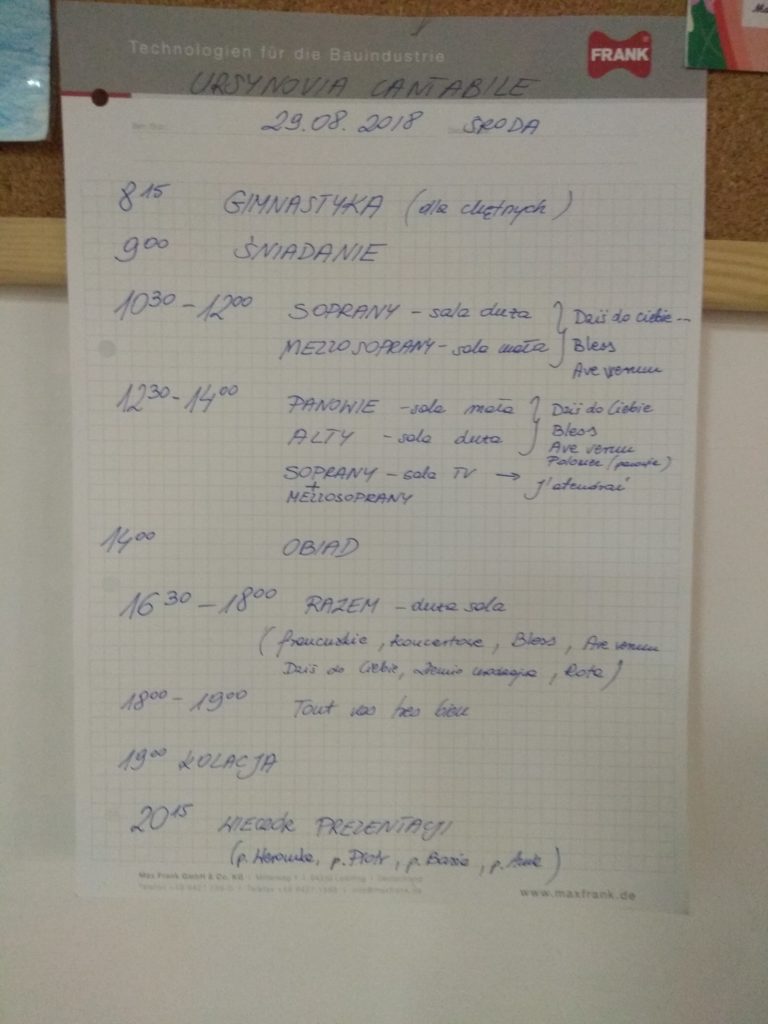 Technologien für die Bauindustrie
FRANK
URSYNOVIA CANTABILE
29.08.2018 ŚRODA
8 15 GIMNASTYKA (dla chętnych)
9 00 ŚNIADANIE
10 30 - 12 00 SOPRANY - sala duża } Dziś do Ciebie...
MEZZOSOPRANY - sala mała Bless
Ave verum
12 30 - 14 00 PANOWIE - sala mała } Dziś do Ciebie
ALTY - sala duża Bless
Ave verum
Polonez (panowie)
SOPRANY - sala TV → J'atendrai
+
MEZZOSOPRANY
14 00 OBIAD
16 30 - 18 00 RAZEM - duża sala
(francuskie, koncertowe, Bless, Ave verum
Dziś do Ciebie, Ziemio , Rota)
18 00 - 19 00 Tout vas tres bien
19 00 KOLACJA
20 15 WIECZÓR PREZENTACJI
(p. Weronika, p. Piotr, p. Basia, p. )
Max Frank GmbH & Co. KG
www.maxfrank.de